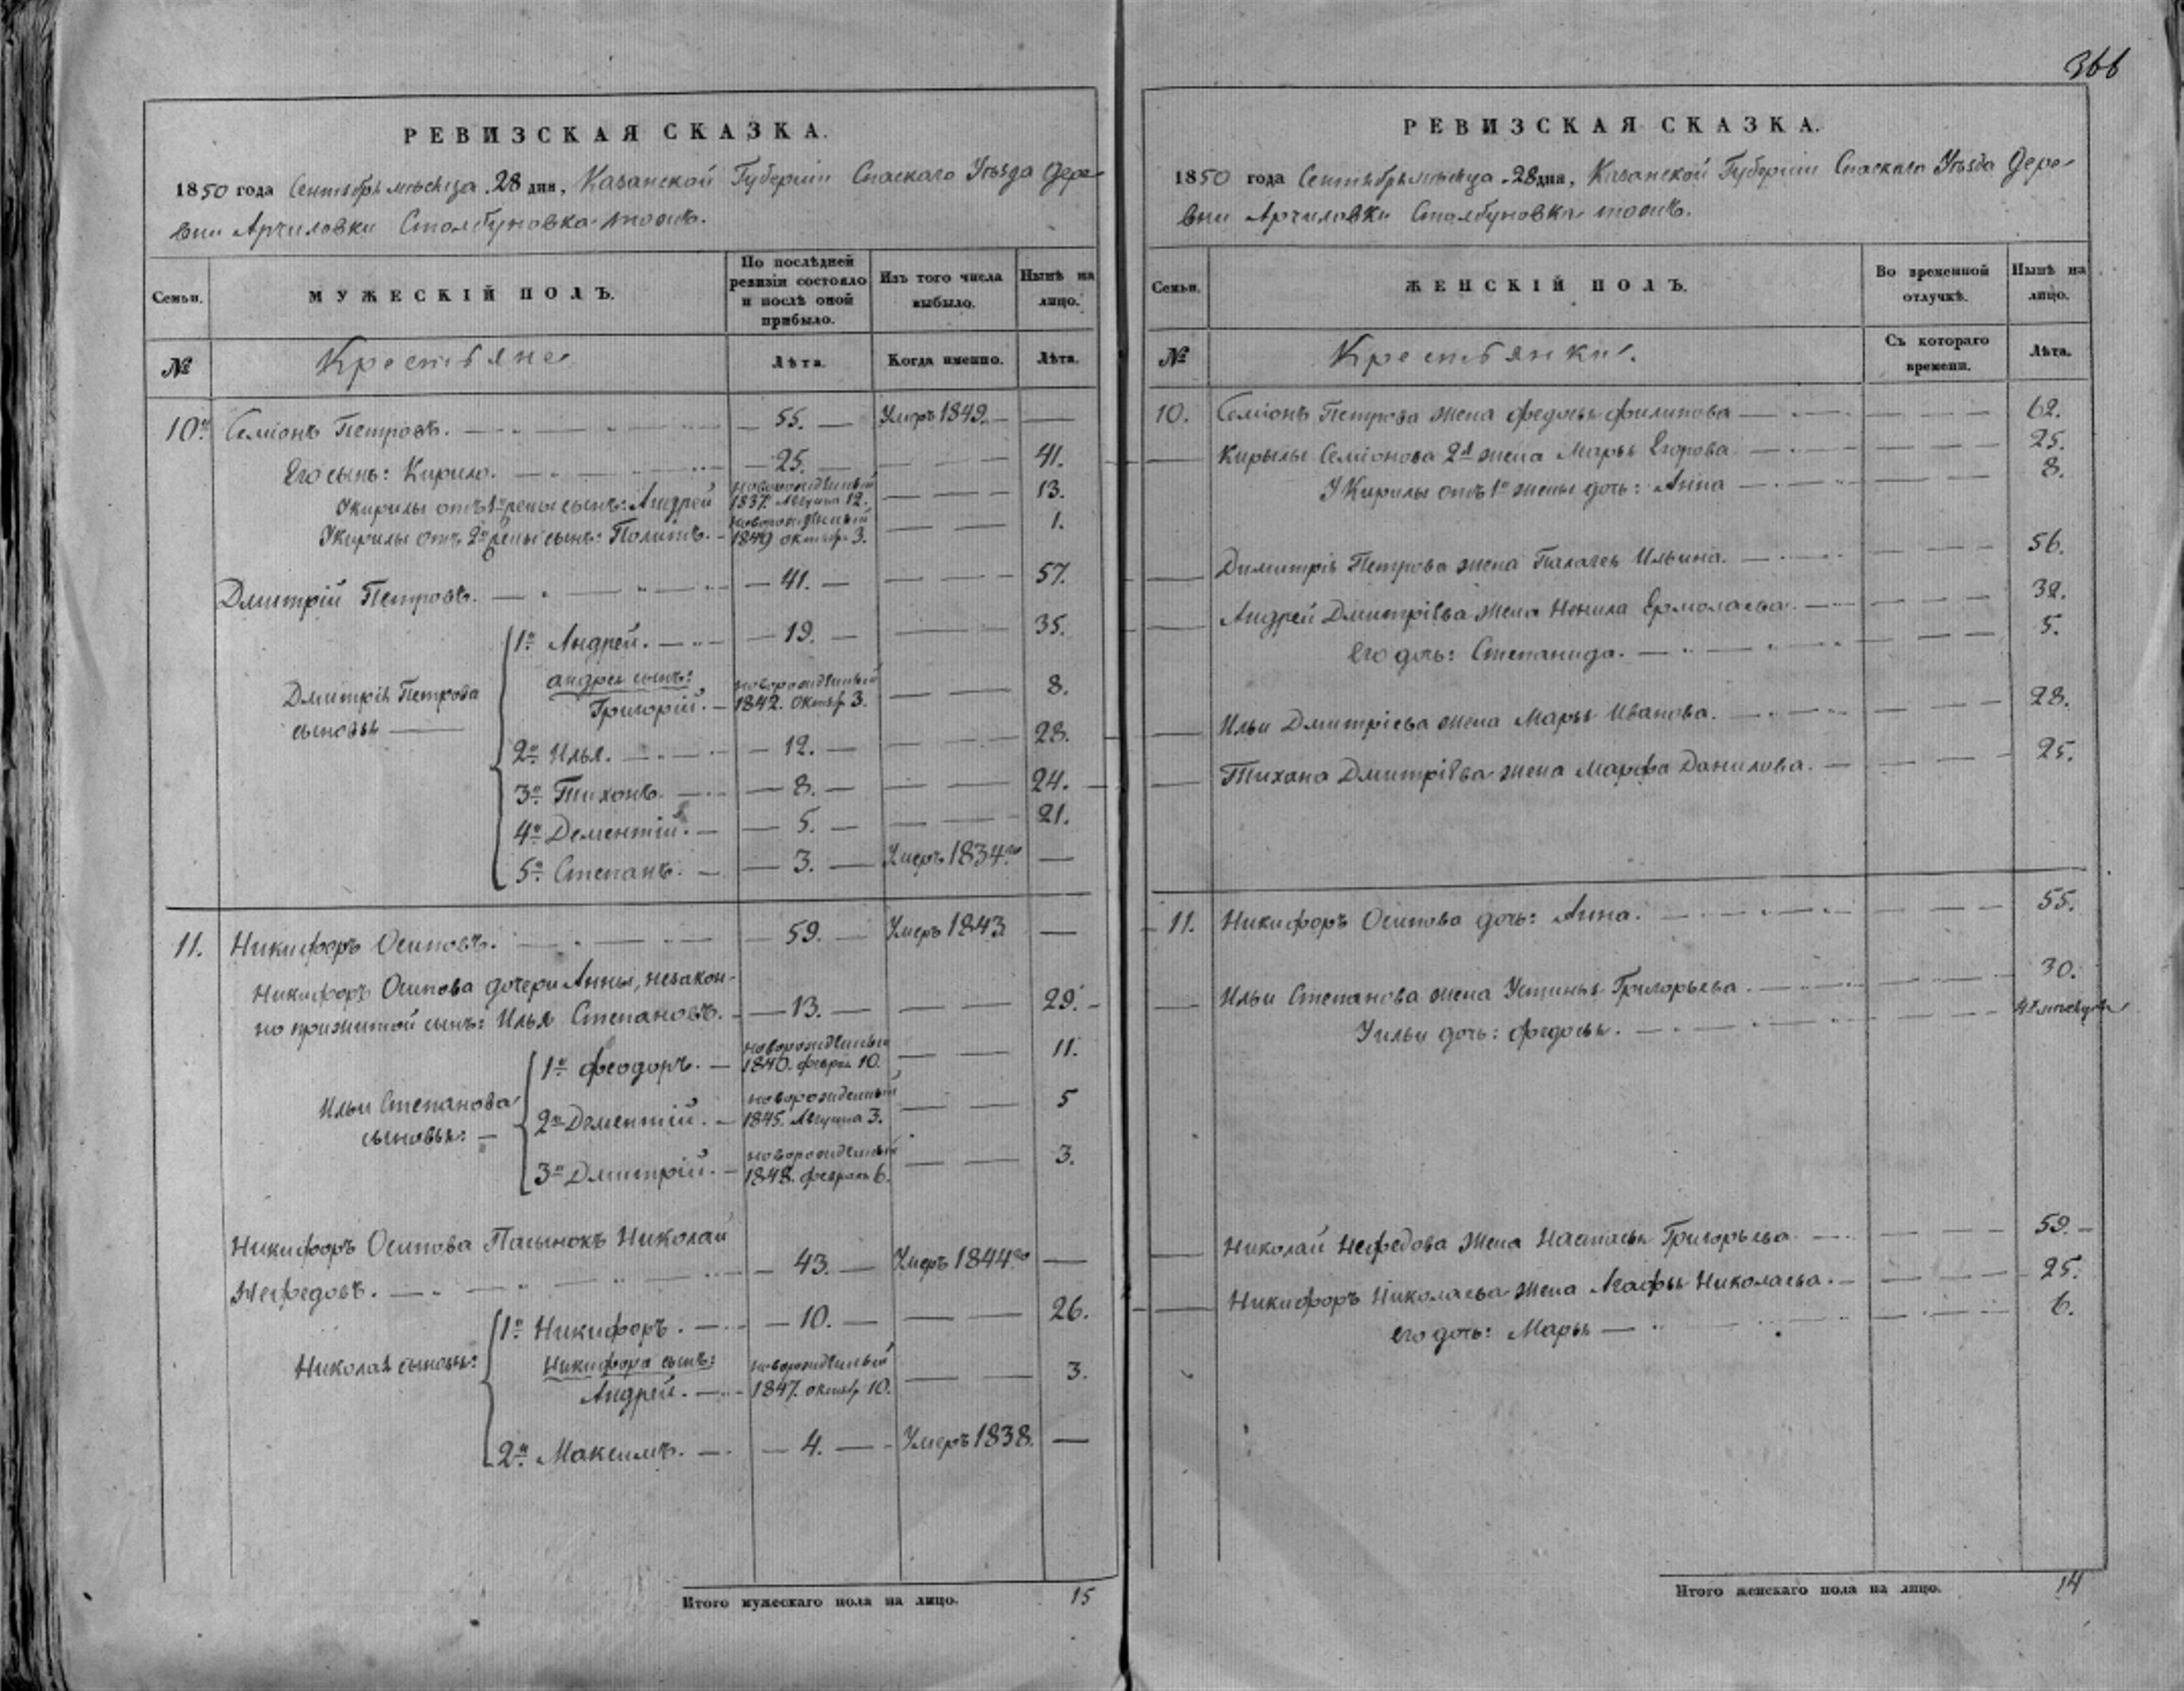 366
РЕВИЗСКАЯ СКАЗКА.
1850 года Сентябрь мѣсяца 28 дня, Казанской Губерніи Спаскаго Уѣзда Дере-
вни Арчиловки Столбуновка тожъ.
Семьи. МУЖЕСКІЙ ПОЛЪ. По послѣдней ревизіи состояло и послѣ оной прибыло. Изъ того числа выбыло. Нынѣ на лицо.
№ Крестьяне Лѣта. Когда именно. Лѣта.
10й Семіонъ Петровъ. 55. Умеръ 1849.
Его сынъ: Кирило. 25. 41.
У Кирилы отъ 1й жены сынъ: Андрей новорожденный 1837. Августа 12. 13.
У Кирилы отъ 2й жены сынъ: Политъ. новорожденный 1849 октябр 3. 1.
Дмитрій Петровъ. 41. 57.
Дмитрія Петрова сыновья
1й Андрей. 19. 35.
андрея сынъ:
Григорій. новорожденный 1842. Октябр 3. 8.
2й Илья. 12. 28.
3й Тихонъ. 8. 24.
4й Дементій. 5. 21.
5й Степанъ. 3. Умеръ 1834го
11. Никифоръ Осиповъ. 59. Умеръ 1843
Никифоръ Осипова дочери Анны, незакон-
но прижитой сынъ: Илья Степановъ. 13. 29.
Ильи Степанова сыновья:
1й Феодоръ. новорожденный 1840. феврал 10. 11.
2й Дементій. новорожденный 1845. Августа 3. 5
3й Дмитрій. новорожденный 1848. февраля 6. 3.
Никифоръ Осипова Пасынокъ Николай
Нефедовъ. 43. Умеръ 1844го
Николая сыновья:
1й Никифоръ. 10. 26.
Никифора сынъ:
Андрей. новорожденный 1847. октябр 10. 3.
2й Максимъ. 4. Умеръ 1838.
Итого мужескаго пола на лицо. 15
РЕВИЗСКАЯ СКАЗКА.
1850 года Сентябрь мѣсяца 28 дня, Казанской Губерніи Спаскаго Уѣзда Дере-
вни Арчиловки Столбуновка тожъ.
Семьи. ЖЕНСКІЙ ПОЛЪ. Во временной отлучкѣ. Нынѣ на лицо.
№ Крестьянки. Съ котораго времени. Лѣта.
10. Семіонъ Петрова жена Федосья филипова 62.
Кирылы Семіонова 2я жена Марья Егорова 25.
У Кирилы отъ 1й жены дочь: Анна 8.
Димитрія Петрова жена Палагея Ильина. 56.
Андрей Дмитріева жена Ненила Ермолаева. 32.
Его дочь: Степанида. 5.
Ильи Дмитріева жена Марья Иванова. 28.
Тихона Дмитріева жена Марфа Данилова. 25.
11. Никифоръ Осипова дочь: Анна. 55.
Ильи Степанова жена Устинья Григорьева. 30.
У ильи дочь: Федосья.
Николай Нефедова жена Настасья Григорьева 59.
Никифоръ Николаева жена Агафья Николаева. 25.
его дочь: Марья 6.
Итого женскаго пола на лицо. 14